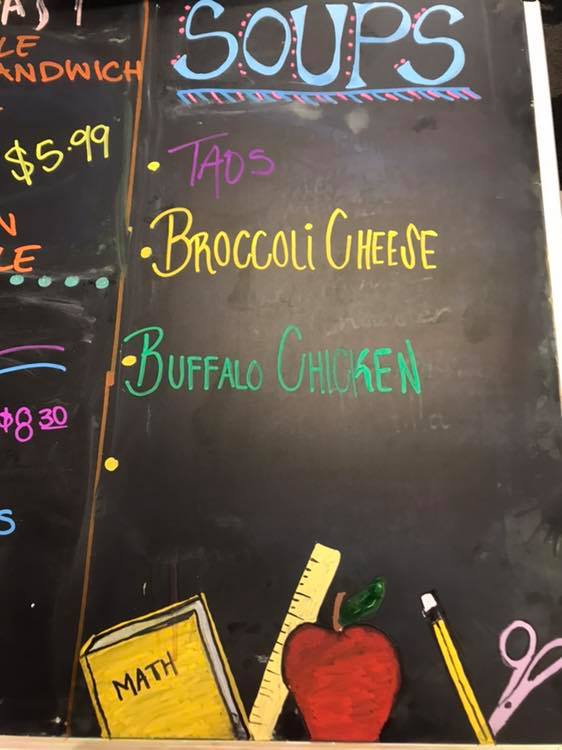 LE
ANDWICH
$5.99
N
LE
$8 30
S
SOUPS
TAOS
BROCCOLI CHEESE
BUFFALO CHICKEN
MATH